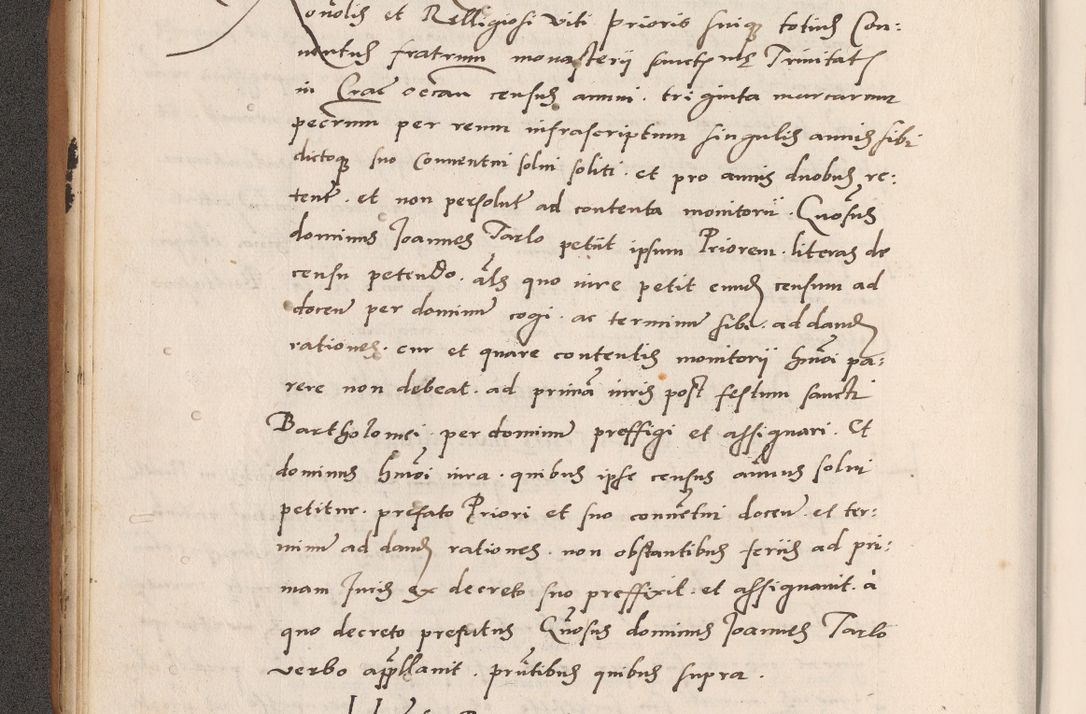 Honolis et Relligiosi viri prioris suique totius Con:
ventus fratrum monasterii sanctissime Trinitatis
in Crac occan census annui . triginta marcarum
pecunm per reum infrascriptum singulis annis sibi
dictoque suo Conventui solui soliti . et pro annis duobus re:
tent . et non persolut ad contenta monitorii . Gnosus
dominus Joannes Tarlo petiit ipsum Priorem . literas de
censu petendo . als quo iure petit eundem censum ad
docen per dominum cogi . ac terminum sibi . ad dandum
rationes . cur et quare contentis monitorii hmoi pa:
rere non debeat . ad primam iuris post festum sancti
Bartholomei per dominum preffigi et assignari . Et
dominus hmoi iura . quibus ipse census annuus solui
petitur . prefato Priori et suo conventui docen . et ter:
minum ad dandum rationes . non obstantibus feriis ad pri:
mam Juris ex decreto suo preffixit . et assignavit . a
quo decreto prefatus Gnosus dominus Joannes Tarlo
verbo appellavit . prntibus quibus supra .